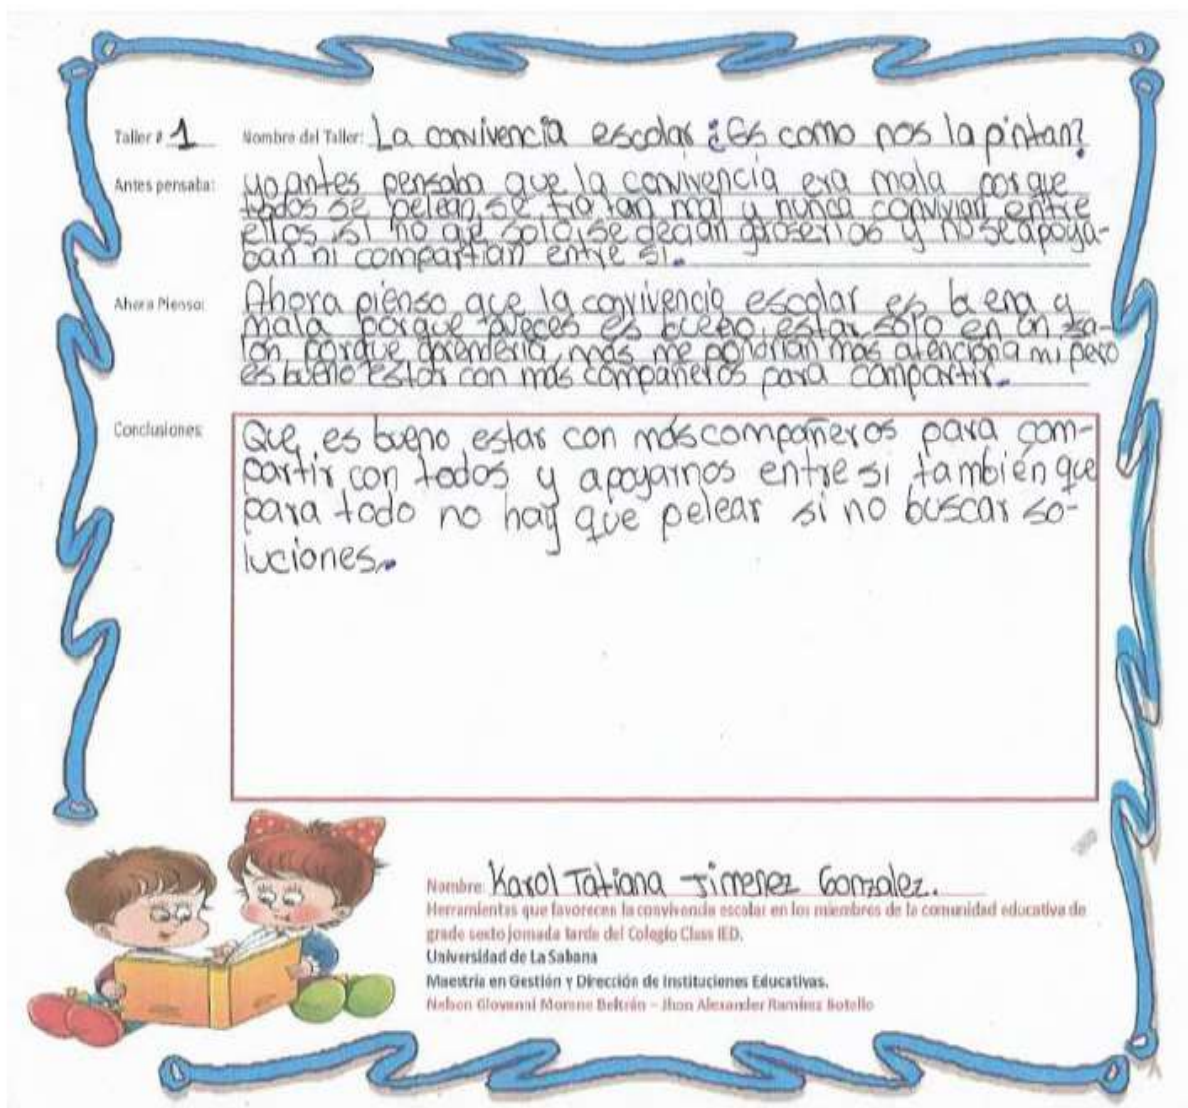 Taller # 1 Nombre del Taller: La convivencia escolar ¿Es como nos la pintan?
Antes pensaba: yo antes pensaba que la convivencia era mala porque
todos se pelean, se tratan mal y nunca convivian entre
ellos si no que solo se decian groserias y no se apoya-
ban ni compartian entre si.
Ahora Pienso: Ahora pienso que la convivencia escolar es buena y
mala porque aveces es bueno estar solo en un sa-
lon, porque aprenderia más me pondrian mas atencion a mi pero
es bueno estar con más compañeros para compartir.
Conclusiones: Que es bueno estar con más compañeros para com-
partir con todos y apoyarnos entre si también que
para todo no hay que pelear si no buscar so-
luciones.
Nombre: Karol Tatiana Jimenez Gonzalez.
Herramientas que favorecen la convivencia escolar en los miembros de la comunidad educativa de
grado sexto jornada tarde del Colegio Class IED.
Universidad de La Sabana
Maestría en Gestión y Dirección de Instituciones Educativas.
Nelson Giovanni Moreno Beltrán – Jhon Alexander Ramírez Botello